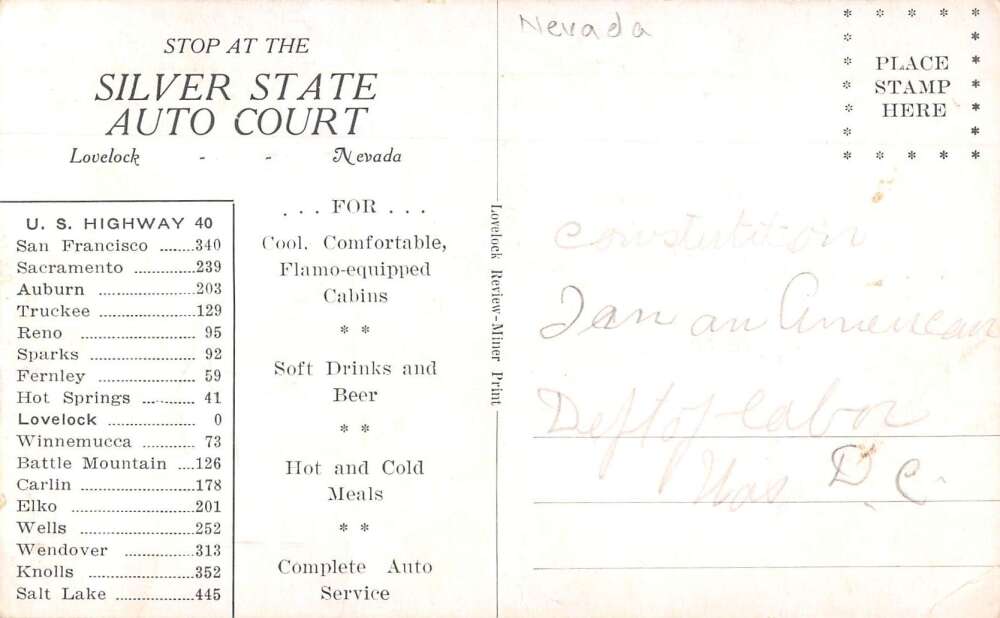 STOP AT THE
SILVER STATE
AUTO COURT
Lovelock - - Nevada
U. S. HIGHWAY 40
San Francisco ........340
Sacramento ..............239
Auburn ......................203
Truckee ......................129
Reno ........................ 95
Sparks ........................ 92
Fernley ...................... 59
Hot Springs ............ 41
Lovelock .................... 0
Winnemucca ............ 73
Battle Mountain ....126
Carlin ........................178
Elko ............................201
Wells ..........................252
Wendover ................313
Knolls ........................352
Salt Lake ..................445
. . . FOR . . .
Cool, Comfortable,
Flamo-equipped
Cabins
* *
Soft Drinks and
Beer
* *
Hot and Cold
Meals
* *
Complete Auto
Service
Lovelock Review-Miner Print
Nevada
PLACE
STAMP
HERE
an American
Dept of Labor
Was D. C.